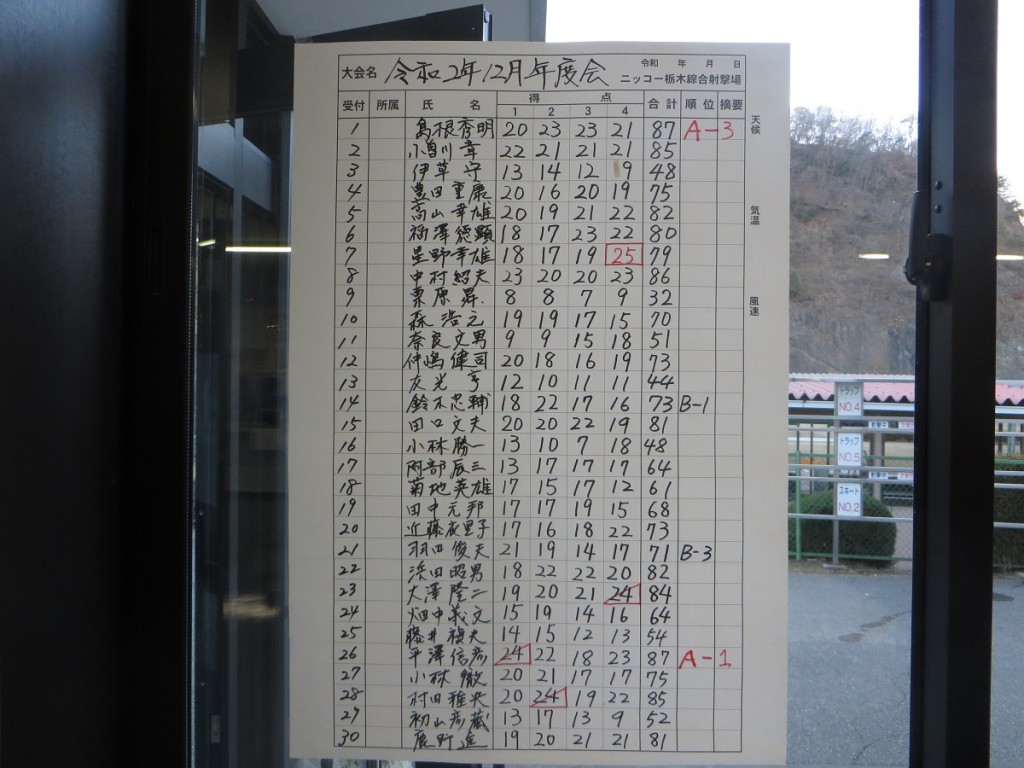 令和 年 月 日
大会名 令和2年12月年度会 ニッコー栃木綜合射撃場
受付 所属 氏名 得点 合計 順位 摘要
1 2 3 4
1 島根秀明 20 23 23 21 87 A-3
2 小島川 章 22 21 21 21 85
3 伊草 守 13 14 12 9 48
4 豊田重康 20 16 20 19 75
5 高山幸雄 20 19 21 22 82
6 福澤徳顕 18 17 23 22 80
7 星野幸雄 18 17 19 25 79
8 中村紹夫 23 20 20 23 86
9 栗原 昇 8 8 7 9 32
10 森 浩之 19 19 17 15 70
11 奈良文男 9 9 15 18 51
12 仲嶋健司 20 18 16 19 73
13 友光 亨 12 10 11 11 44
14 鈴木忠輔 18 22 17 16 73 B-1
15 田口文夫 20 20 22 19 81
16 小林勝一 13 10 7 18 48
17 阿部辰三 13 17 17 17 64
18 菊地英雄 17 15 17 12 61
19 田中元邦 17 17 19 15 68
20 近藤衣里子 17 16 18 22 73
21 羽田俊夫 21 19 14 17 71 B-3
22 浜田昭男 18 22 22 20 82
23 大澤隆二 19 20 21 24 84
24 畑中義文 15 19 14 16 64
25 藤井積夫 14 15 12 13 54
26 平澤信彦 24 22 18 23 87 A-1
27 小林 徹 20 21 17 17 75
28 村田雅央 20 24 19 22 85
29 初山彦蔵 13 17 13 9 52
30 鹿野 進 19 20 21 21 81
天候
気温
風速
トラップ
NO.4
トラップ
NO.5
スキート
NO.2